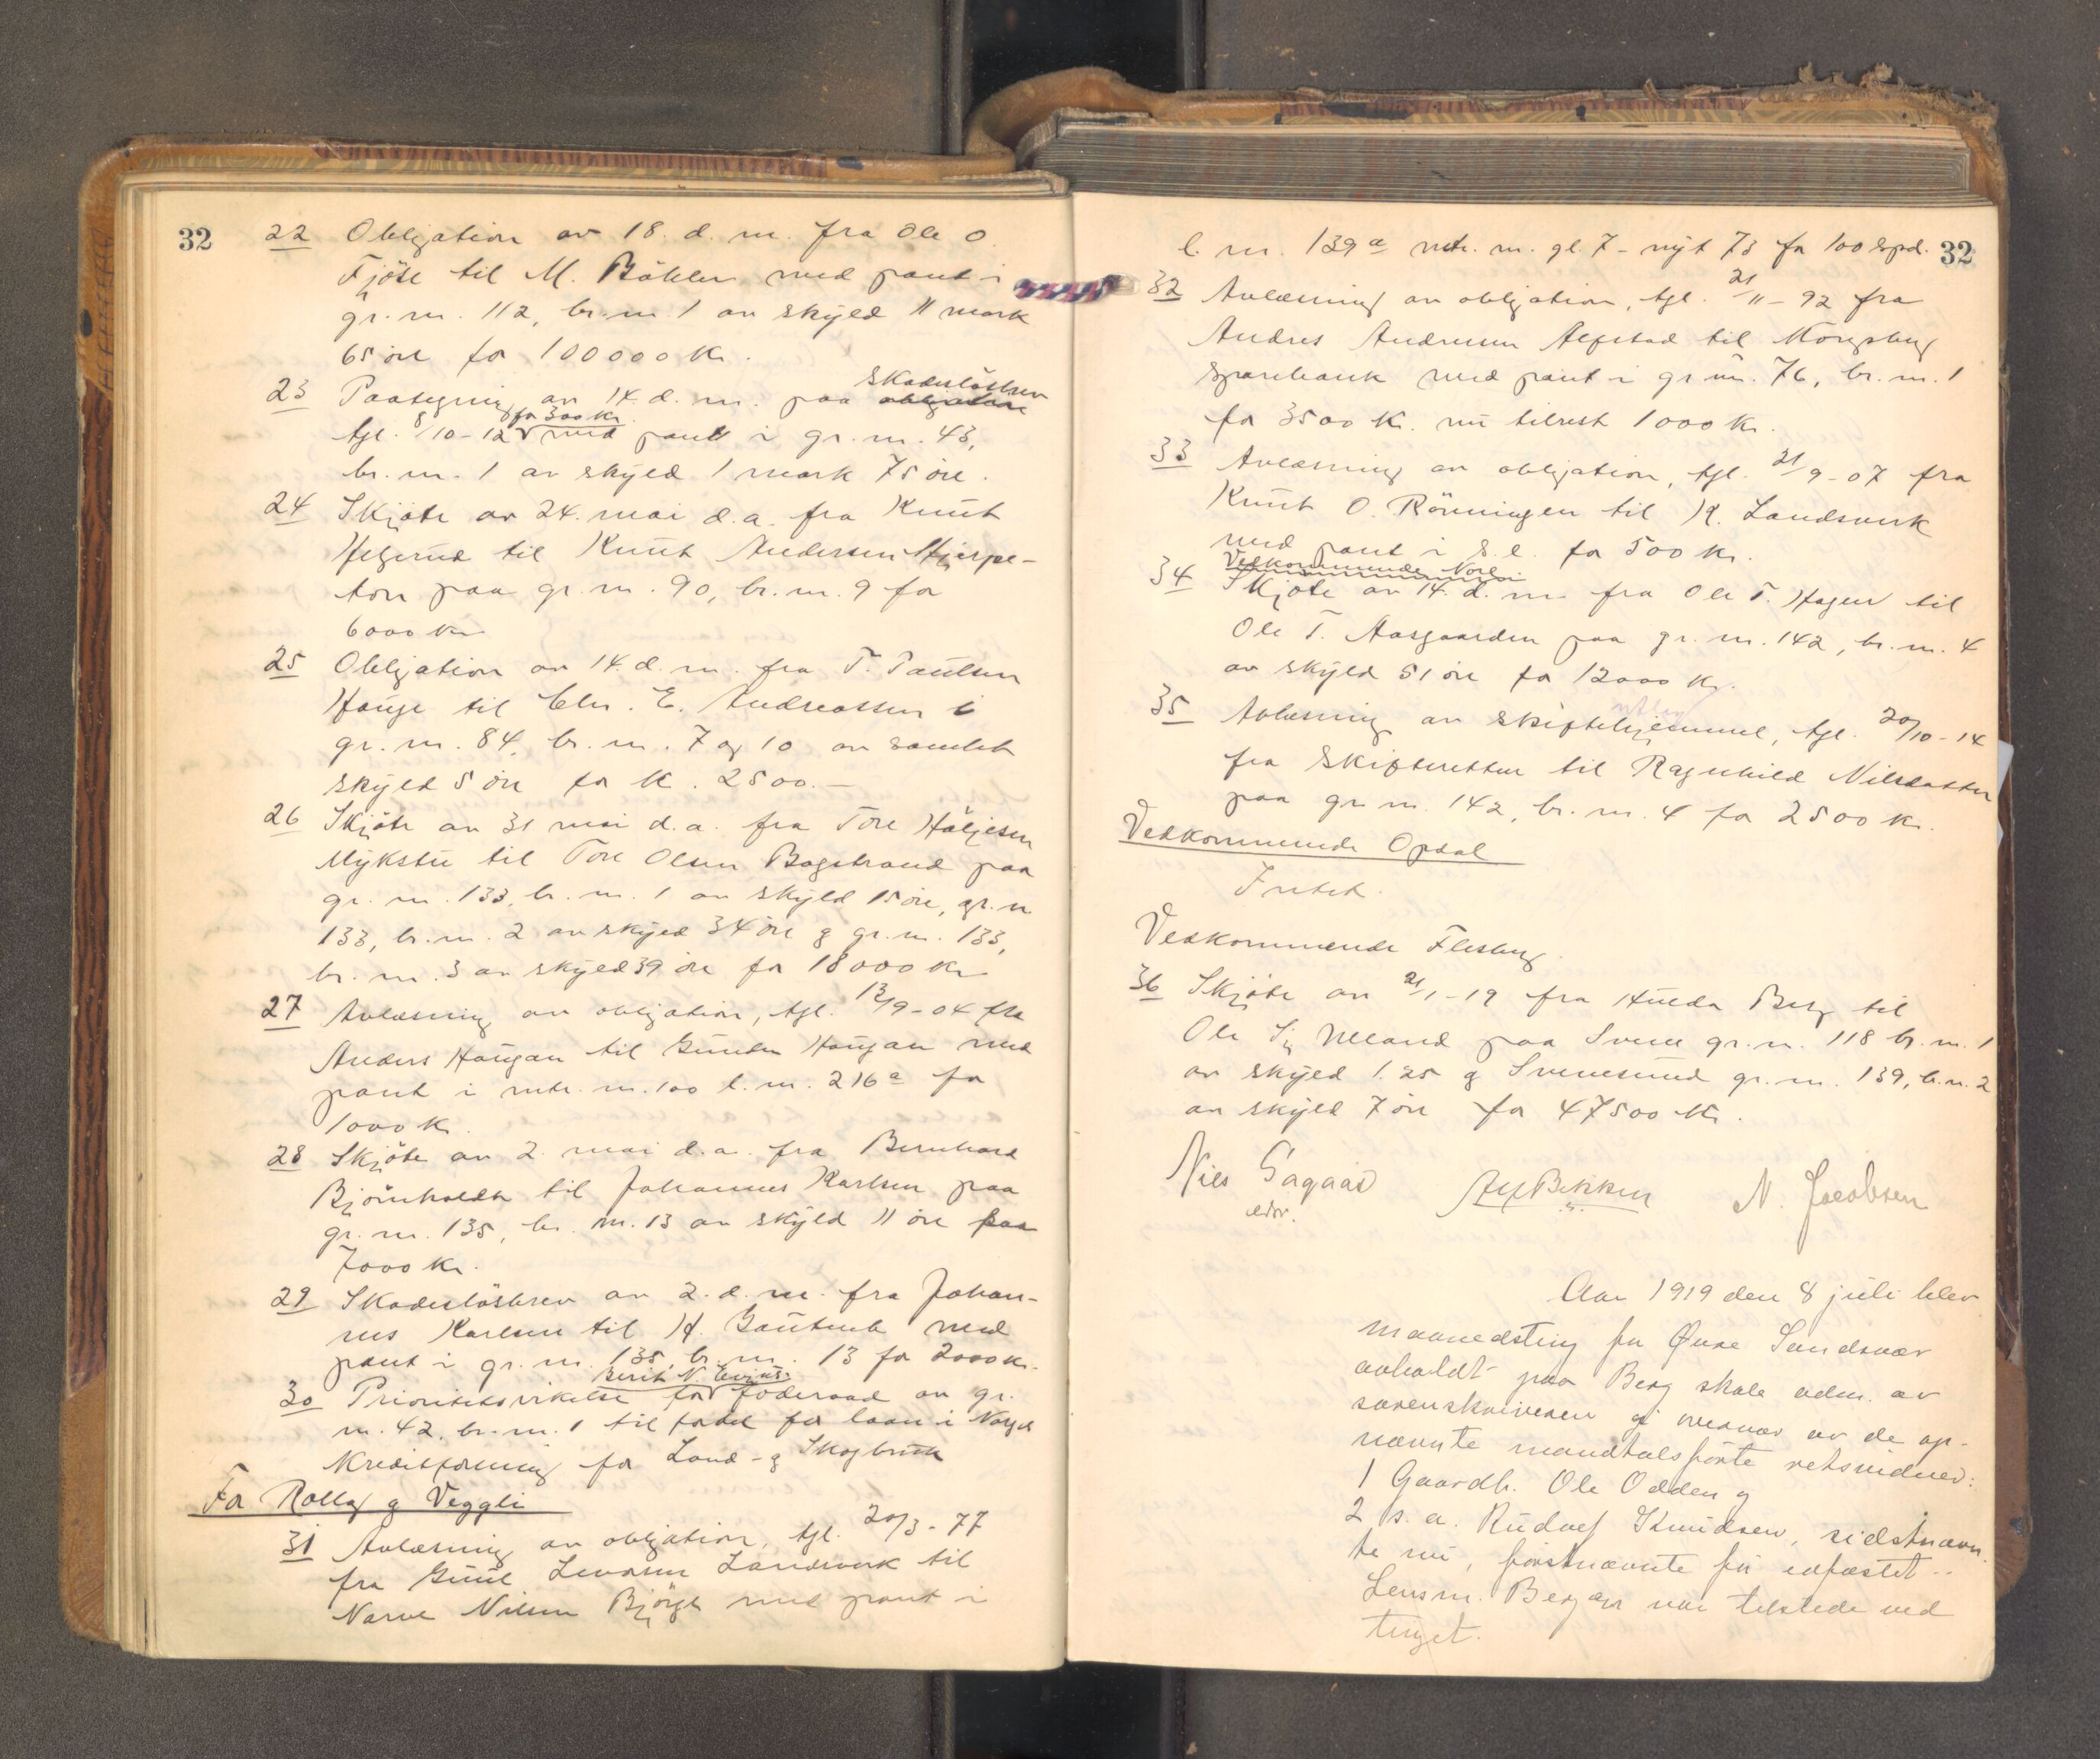 32
22 Obligation av 18. d. m. fra Ole O.
Fjöse til M. Böhler med pant i
gr. n. 112, br. n. 1 av skyld 11 mark
65 öre for 100000 Kr.
23 Paategning av 14. d. m. paa obligation Skadeslösbrev
tgl. 8/10-12 for 300 Kr. med pant i gr. n. 43,
br. n. 1 av skyld 1 mark 75 öre.
24 Skjöte av 24. mai d. a. fra Knut
Helgerud til Knut Andersen Hjerpe-
ton paa gr. n. 90, br. n. 9 for
6000 Kr
25 Obligation av 14. d. m. fra T. Paulsen
Hauge til Chr. E. Andreassen i
gr. n. 84, br. n. 7 og 10 av samlet
skyld 5 öre for K. 2500.-
26 Skjöte av 31 mai d. a. fra Tore Höljesen
Mykstu til Tore Olsen Bagstrand paa
gr. n. 133, br. n. 1 av skyld 15 öre, gr. n.
133, br. n. 2 av skyld 34 öre g gr. n. 133,
br. n. 3 av skyld 39 öre for 18000 Kr
27 Avlæsning av obligation, tgl. 13/9-04 fra
Anders Haugan til Gunder Haugan med
pant i mtr. n. 100 l. n. 216a for
1000 K.
28 Skjöte av 2. mai d. a. fra Bernhard
Björnholdt til Johannes Karlsen paa
gr. n. 135, br. n. 13 av skyld 11 öre paa
7000 Kr.
29 Skadeslösbrev av 2. d. m. fra Johan-
nes Karlsen til H. Gautneb med
pant i gr. n. 135, br. n. 13 for 2000 Kr.
30 Prioritetsvikelse for Berit N. föderaad av gr.
n. 42, br. n. 1 til fordel for laan i Norges
Kreditforening for Land- g Skogbruk
For Rollag g Veggli
31 Avlæsning av obligation, tgl. 20/3-77
fra Gunul Landsverk til
Narve Nilsen med pant i
32
l. n. 139a mtr. n. gl. 7 - nyt 73 for 100 spd.
32 Avlæsning av obligation, tgl. 21/11-92 fra
Andres Andresen Alfstad til Kongsberg
Sparebank med pant i gr. n. 76, br. n. 1
for 3500 K. nu tilrest 1000 Kr.
33 Avlæsning av obligation, tgl. 21/9-07 fra
Knut O. Rönningen til K. Landsverk
med pant i s. e. for 500 Kr.
Vedkommende Nore
34 Skjöte av 14. d. m. fra Ole T. Hagen til
Ole T. Aasgaarden paa gr. n. 142, br. n. 4
av skyld 51 öre for 12000 Kr.
35 Avlæsning av skiftehjemmel, tgl. 20/10-14
fra Skifteretten til Ragnhild Nilsdatter
paa gr. n. 142, br. n. 4 for 2500 Kr.
Vedkommende Opdal
Intet.
Vedkommende Flesberg.
36 Skjöte av 21/1-19 fra Hulda Berg til
Ole Sj. Ulland paa Svene gr. n. 118 br. n. 1
av skyld 1.25 g Svenesund gr. n. 139, br. n. 2
av skyld 7 öre for 47500 Kr.
Niels Gagaas
edsv.
A H Bekken
N. Jacobsen
Aar 1919 den 8 juli blev
maanedsting for Øvre Sandsvær
avholdt paa Berg skole adm. av
sorenskriveren g overvær av de op-
nævnte mandtalsförte retsvidner:
1 Gaardb. Ole Odden g
2 s. a. Rudolf Knudsen, sidstnævn-
te nu, förstnævnte för edfæstet..
Lensm. Berger var tilstede ved
tinget.